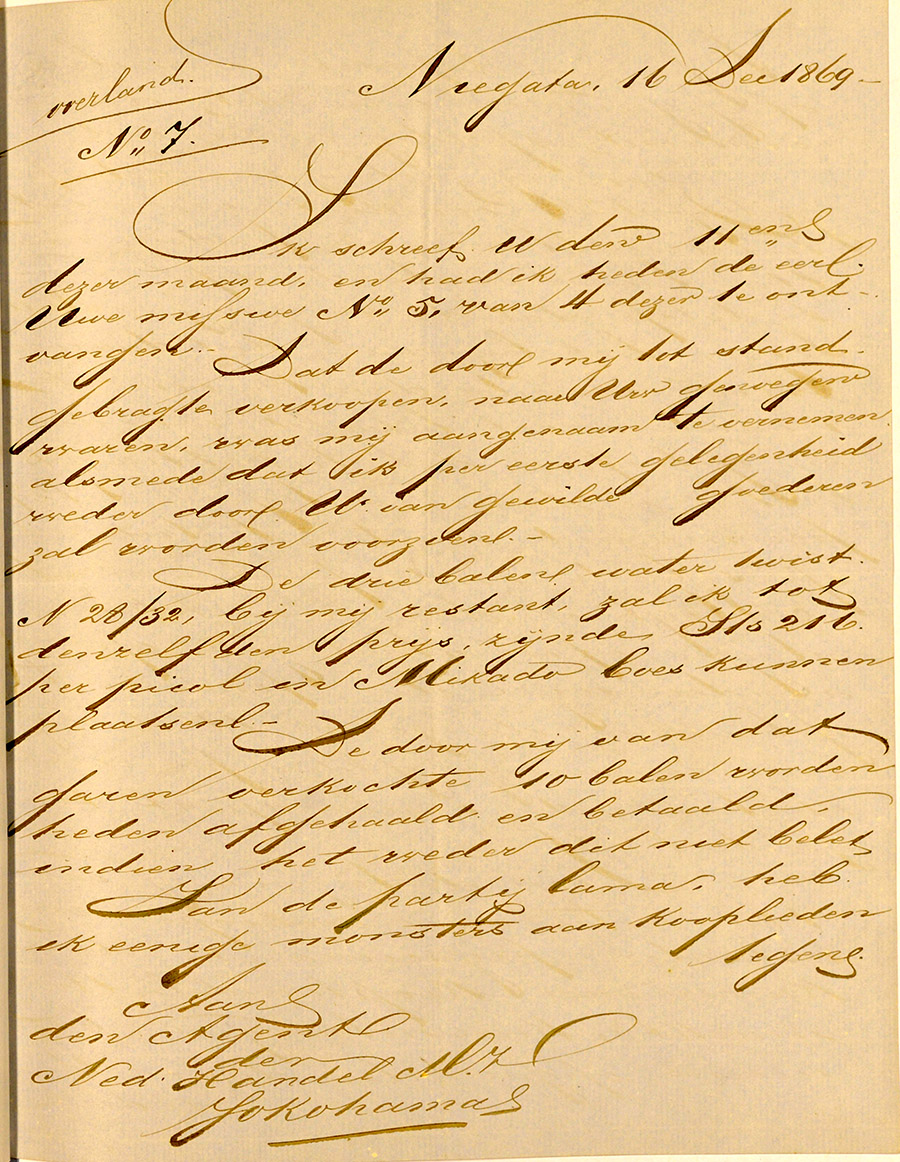 overland.
No. 7.
Niegata, 16 Dec 1869 –
Ik schreef U den 11en
dezer maand, en had ik heden de eerl.
Uwe missive No. 5, van 4 dezer te ont-
vangen. –
Dat de door mij tot stand
gebragte verkoopen, naar Uw genoegen
waren, was mij aangenaam te vernemen
alsmede dat ik per eerste gelegenheid
weder door U van gewilde goederen
zal worden voorzien. –
De drie balen water twist.
N 28/32, bij mij restant, zal ik tot
denzelfden prijs, zijnde $ 216.
per picol in Mikado boes kunnen
plaatsen. –
De door mij van dat
garen verkochte 10 balen worden
heden afgehaald en betaald,
indien het weder dit niet belet
Van de partij lama, heb
ik eenige monsters aan kooplieden
tegen
Aan
den Agent
der
Ned. Handel M.
Yokohama